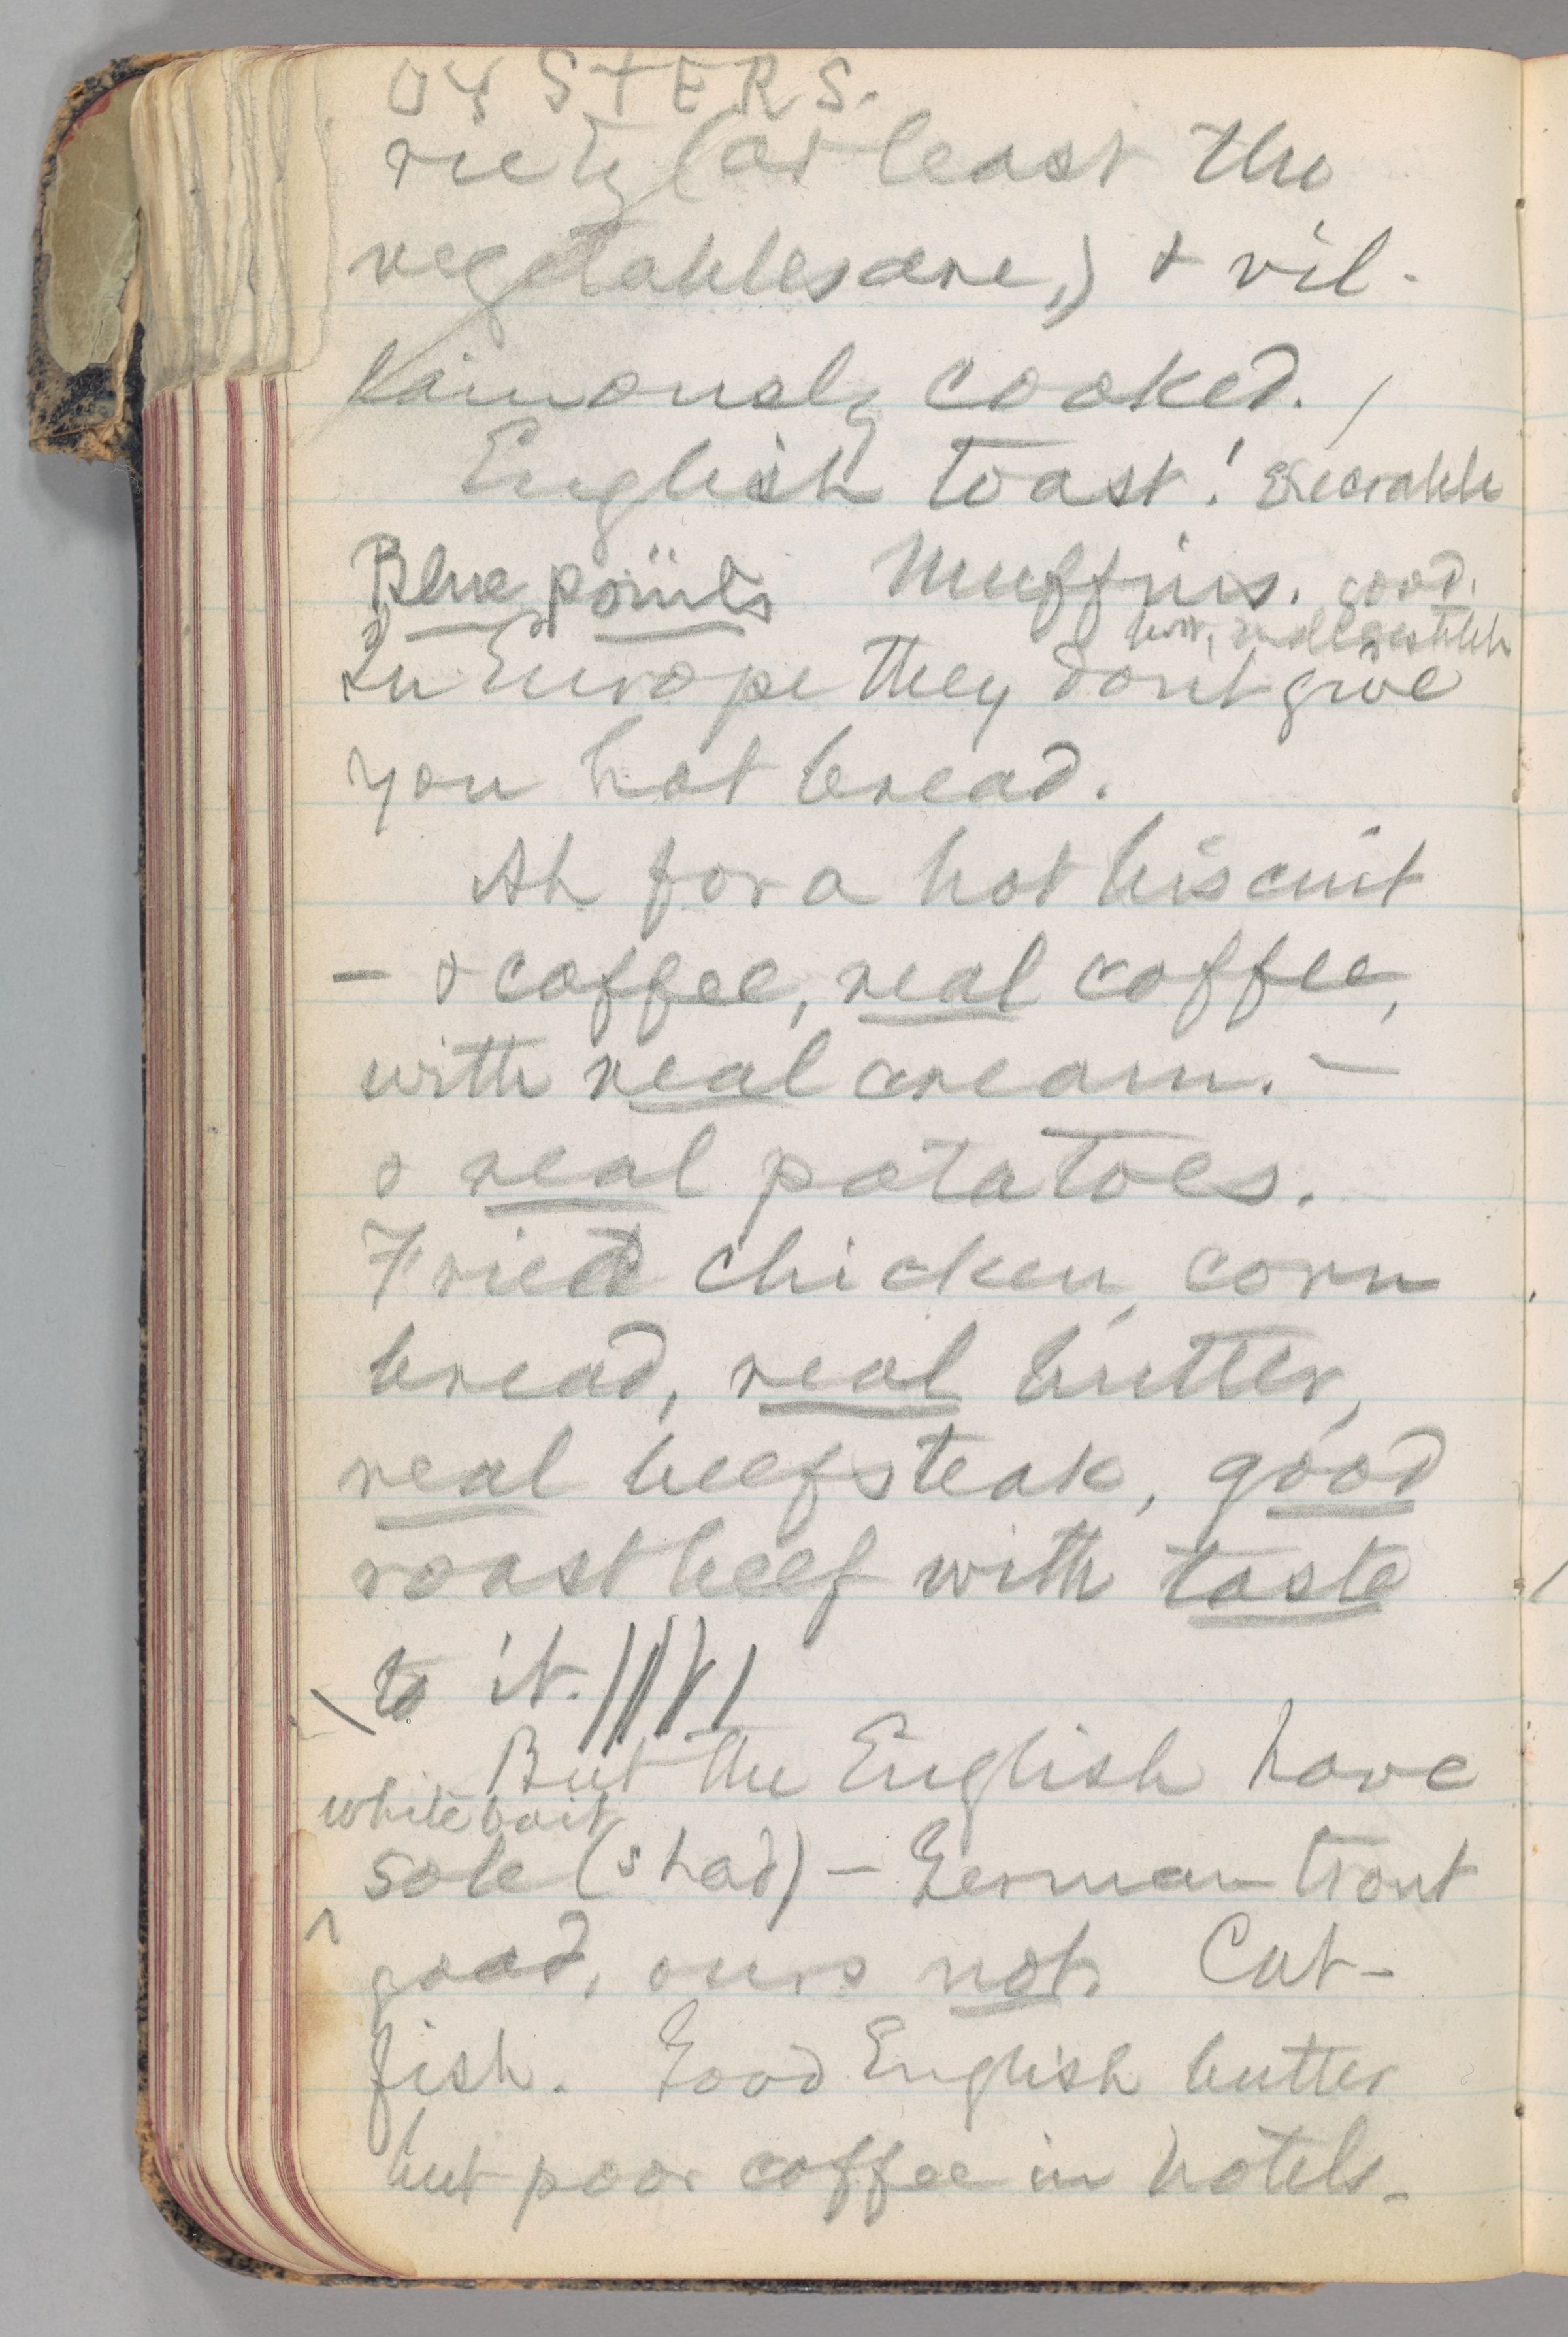 OYSTERS.
riety (at least the
vegetables are,) & vil-
lainously cooked.
English toast! Execrable
Blue points Muffins. good.
but, indigestible
In Europe they don't give
you hot bread.
Ah for a hot biscuit
— & coffee, real coffee,
with real cream. —
& real potatoes.
Fried chicken, corn
bread, real butter,
real beefsteak, good
roast beef with taste
to it.
But the English have
whitebait
sole (shad) — German trout
^
good, ours not. Cat-
fish. Good English butter
but poor coffee in hotels-